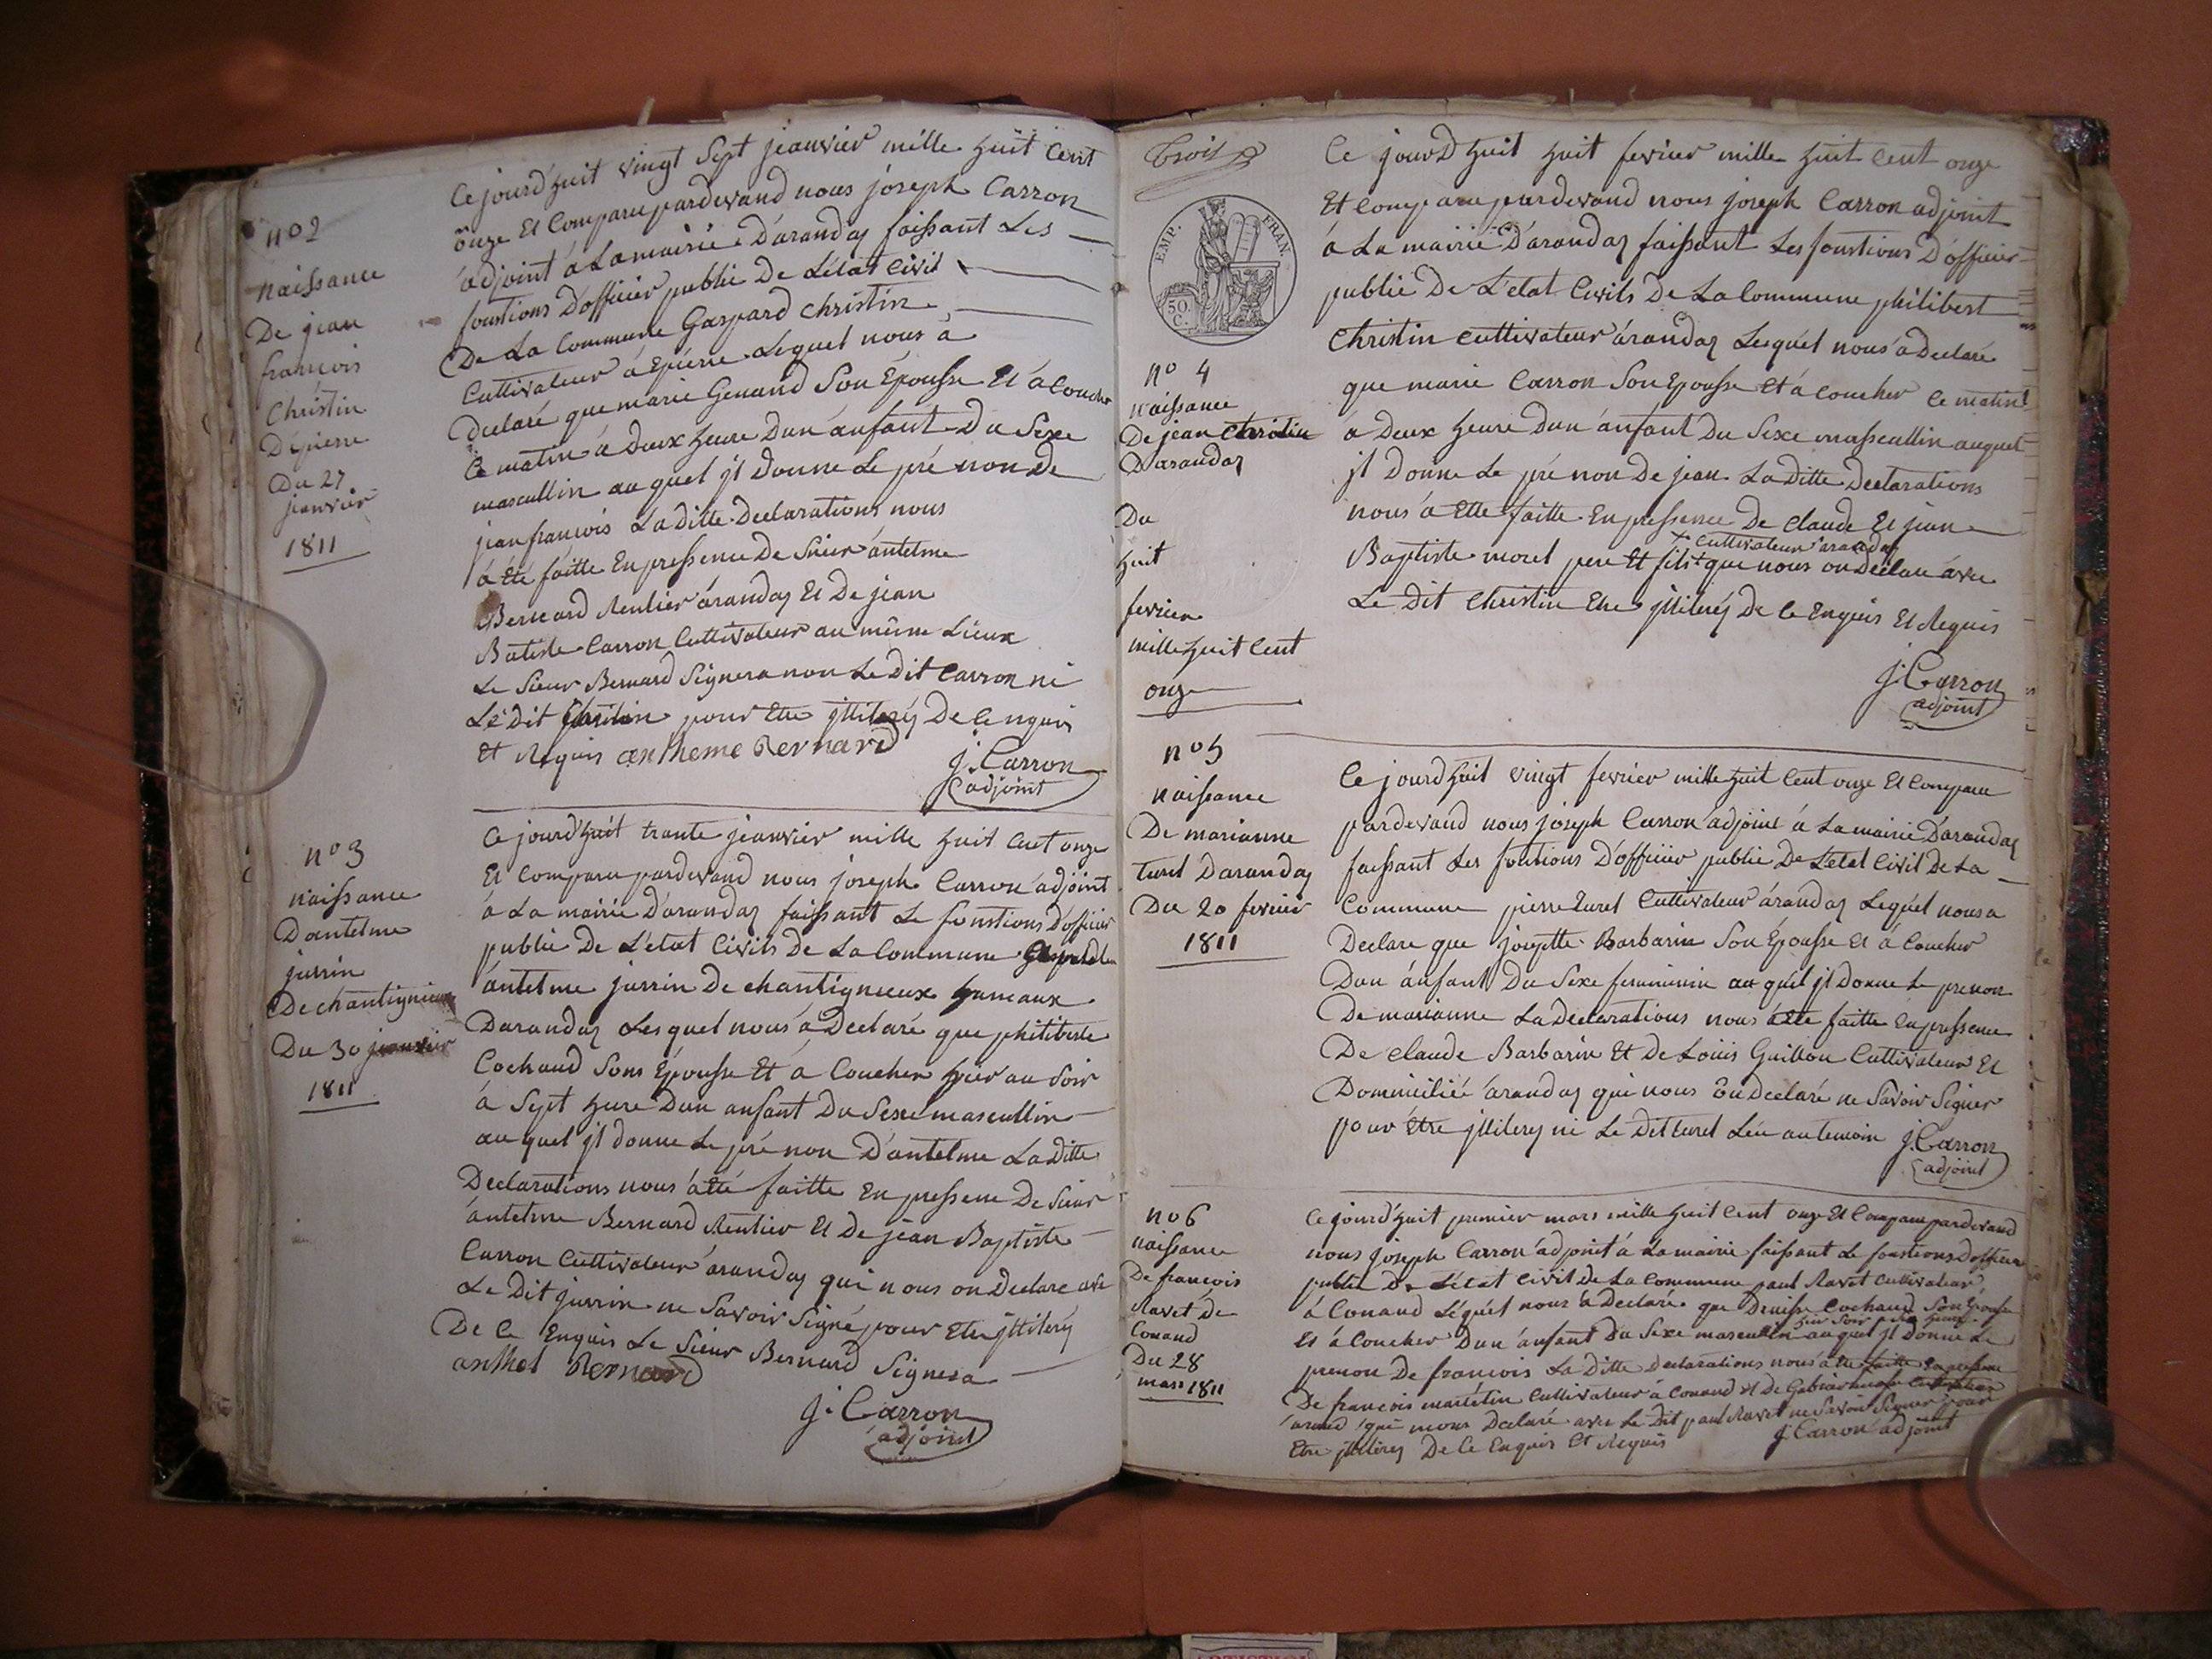 nº 2
naissance
De jean
francois
Christin
Dépierre
Du 27
jeanvier
1811
Ce jourd'huit vingt Sept jeanvier mille huit Cent
onze Et Comparu pardevand nous joseph Carron
adjoint à La mairie D'arandas faissant Les
fonstions D'officier public De L'état Civil
De La Commune Gaspard Christin
Cultivateur á Epierre Lequel nous á
Declaré que marie Genand Son Épousse Et á Coucher
Ce matin á Deux heure Dun ánfant Du Sexe
mascullin au quel jl Donne Le pré non De
jean francois La Ditte Declarations nous
á Eté faitte En pressence De Sieur ántelme
Bernard Rentier árandas Et De jean
Batiste Carron Cultivateur au même Lieux
Le Sieur Bernard Signera non Le Dit Carron ni
Le Dit Christin pour Etre jlliterés De Ce nquis
Et Requis antheme Bernard
J. Carron
adjoint
nº 3
naissance
D'antelme
jurrin
De chantignieux
Du 30 jeanvier
1811
Ce jourd'huit trante jeanvier mille huit Cent onze
Et Comparu pardevand nous joseph Carron adjoint
á La mairie D'arandas faissant Le fonstions D'officier
public De L'etat Civils De La Commune
ántelme jurrin De chantignieux hameaux
Darandas Lesquel nous á Declaré que philiberte
Cochand Sons Épousse Et á Coucher hier au Soir
á Sept heure Dun anfant Du Sexe mascullin
au quel jl Donne Le pré non D'antelme La Ditte
Declarations nous á été faitte En pressence De Sieur
ántelme Bernard Rentier Et De jean Baptiste
Carron Cultivateur árandas qui nous on Declare ave
Le Dit jurrin ne Savoir Signé pour Etre jlliterés
De Ce Enquis Le Sieur Bernard Signera
anthel Bernard
J. Carron
adjoint
Trois
EMP. FRAN.
50 C.
nº 4
naissance
De jean Christin
Darandas
Du
huit
fevrier
mille huit Cent
onze
Ce jourd'huit huit fevrier mille huit Cent onze
Et Comparu pardevand nous joseph Carron adjoint
á La mairie D'arandas faissant Les fonstions D'officier
public De L'etat Civils De La Commune philibert
Christin Cultivateur árandas Lequel nous á Declaré
que marie Carron Son Epousse Et á Coucher Ce matin
á Deux heure Dun ánfant Du Sexe masscullin auquel
jl Donne Le pré non De jean La Ditte Declarations
nous á Etté faitte En pressence De Claude Et jean
+ Cultivateur arandas
Baptiste morel pere Et fils + que nous on Declare ávec
Le Dit Christin Etre jlliterés De Ce Enquis Et Requis
J. Carron
adjoint
nº 5
naissance
De marianne
turel D'arandas
Du 20 fevrier
1811
Ce jourd'huit vingt fevrier mille huit Cent onze Et Comparu
pardevand nous joseph Carron adjoint á La mairie D'arandas
faissant Les fontions D'officier public De L'etat Civil De La
Commune pierre turel Cultivateur árandas Lequel nous a
Declare que josephte Barbarin Son Épousse Et á Coucher
Dun ánfant Du Sexe femminin au quel jl Donne Le prenon
De marianne La Declarations nous á été faitte En pressence
De Claude Barbarin Et De Louis Guillou Cultivateur Et
Dommicilié árandas qui nous on Declaré ne Savoir Signer
pour être jlliterez ni Le Dit turel Leu au temoin J. Carron
adjoint
nº 6
naissance
De francois
Ravet de
Conand
Du 28
mars 1811
Ce jourd'huit premier mars mille huit Cent onze Et Comparu pardevand
nous joseph Carron adjoint á La mairie faissant Le fonstions D'officier
public De L'état Civil De La Commune paul Ravet Cultivateur
á Conand Lequel nous á Declaré que Denisse Cochand Son Épouse
hier Soir
Et á Coucher Dun ánfant Du Sexe mascullin auquel jl Donne Le
prenon De francois La Ditte Declarations nous á Eté faitte En pressence
De francois Cultivateur á Conand Et De
qui nous Declaré avec Le Dit paul Ravet ne Savoir Signer pour
Etre jlliterés De Ce Enquis Et Requis J. Carron adjoint